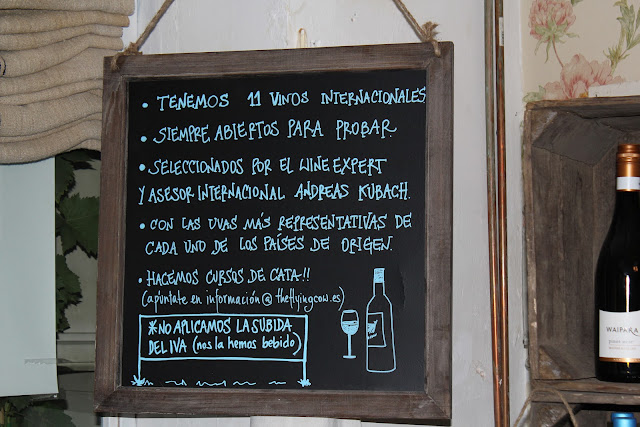 • TENEMOS 11 VINOS INTERNACIONALES
• SIEMPRE, ABIERTOS PARA PROBAR.
• SELECCIONADOS POR EL WINE EXPERT
Y ASESOR INTERNACIONAL ANDREAS KUBACH.
• CON LAS UVAS MÁS REPRESENTATIVAS DE
CADA UNO DE LOS PAÍSES DE ORIGEN.
• HACEMOS CURSOS DE CATA!!
(apúntate en información@theflyingcow.es)
*NO APLICAMOS LA SUBIDA
DEL IVA (nos la hemos bebido)
WAIPARA